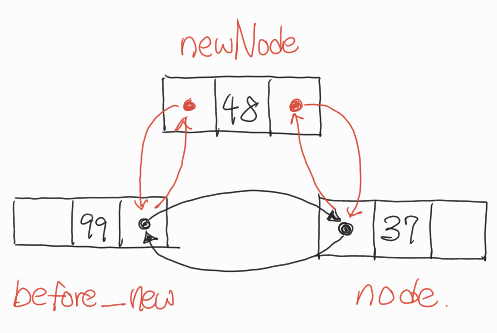 newNode
48
99
37
before_new
node.